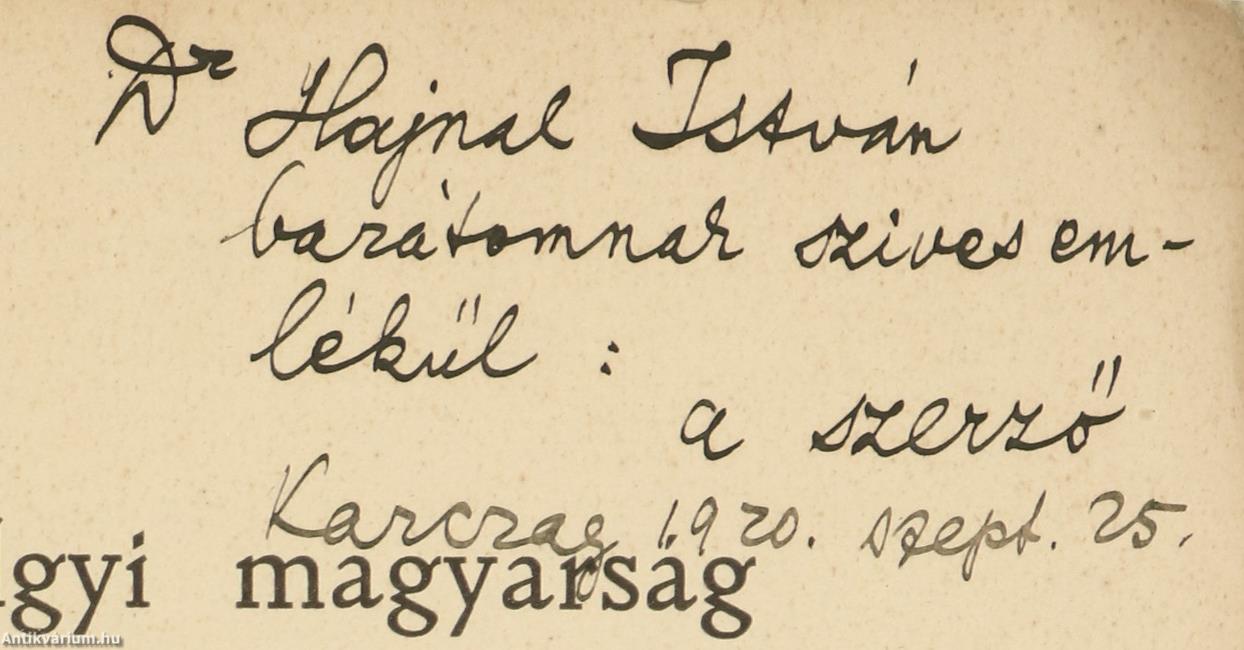 Dr Hajnal István
barátomnak szives em-
lékűl :
a szerző
Karczag 1920. szept. 25.
gyi magyarság
Antikvárium.hu